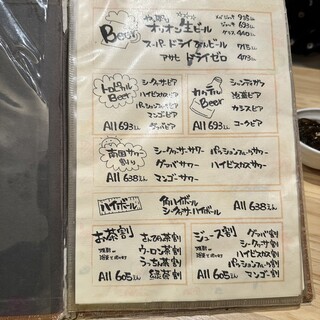 Beer
オリオン生ビール
スーパードライ ビール
アサヒ ドライゼロ
トロピカル Beer
シークヮサービア
ハイビスカスビア
パッションフルーツビア
マンゴービア
All 693えん
カクテル Beer
シャンディガフ
カシスビア
コークビア
All 693えん
南国サワー
シークヮサーサワー
グァバサワー
マンゴーサワー
パッションフルーツサワー
ハイビスカスサワー
All 638えん
ハイボール
角ハイボール
シークヮサーハイボール
All 638えん
お茶割
さんぴん茶割
ウーロン茶割
うっちん茶割
緑茶割
All 605えん
ジュース割
グァバ割
シークヮサー割
ハイビスカス割
パッションフルーツ割
マンゴー割
All 605えん